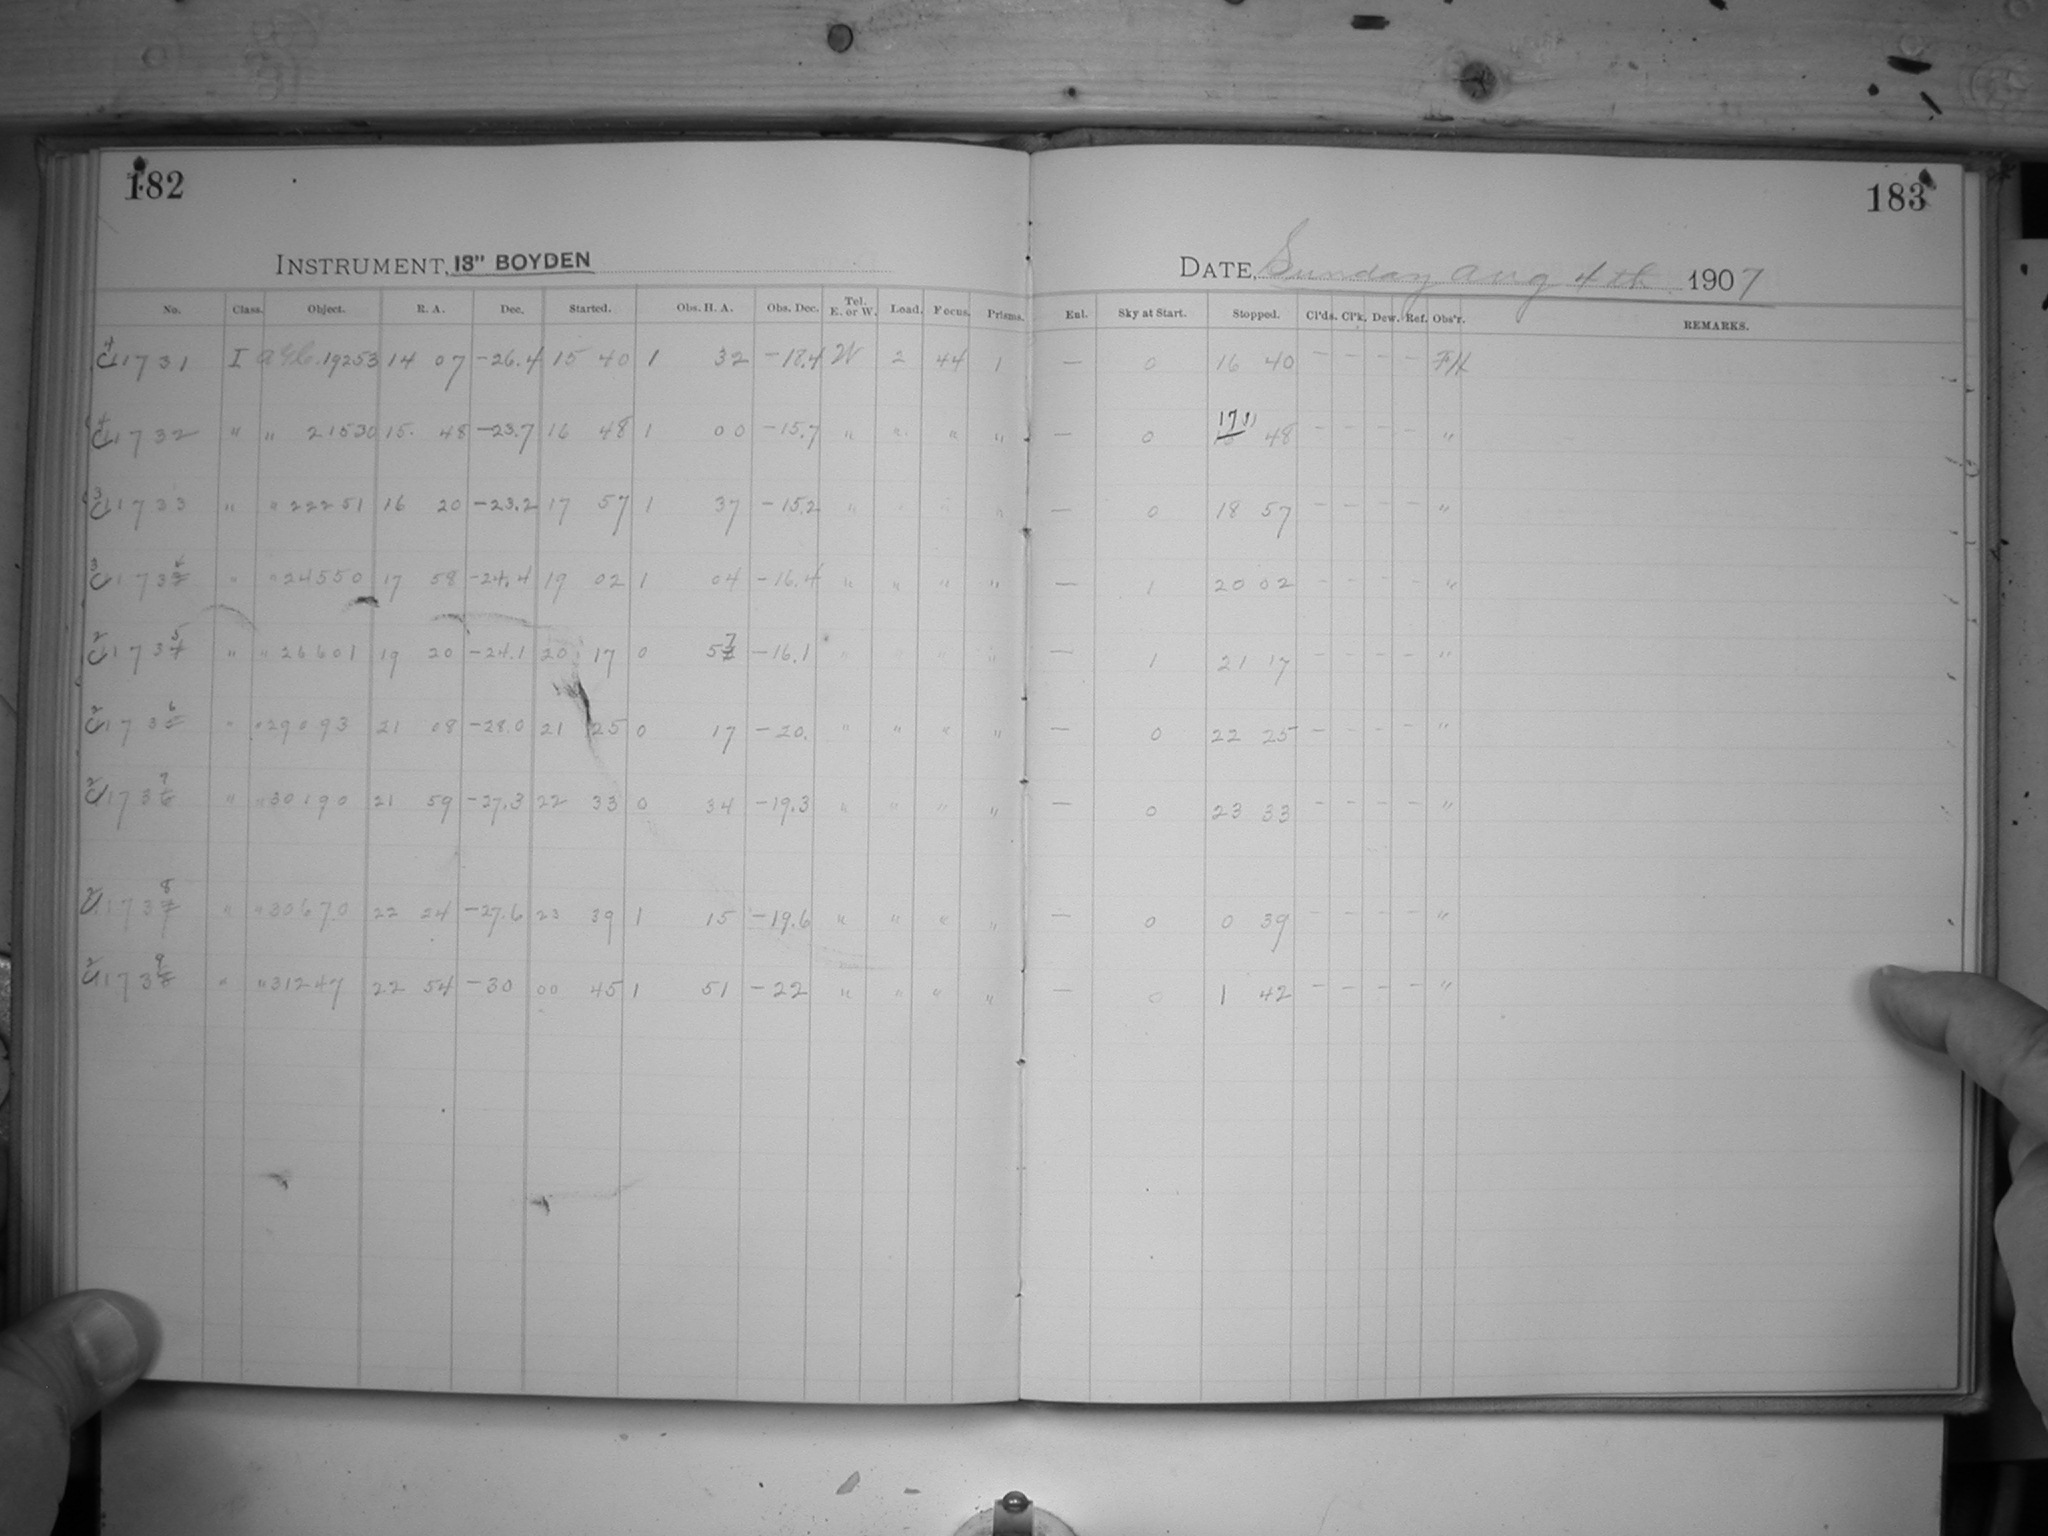 182
183
INSTRUMENT, 13" BOYDEN
DATE, Sunday Aug 4th 1907
No. Class. Object. R. A. Dec. Started. Obs. H. A. Obs. Dec. Tel. E. or W. Load. Focus. Prisms. Enl. Sky at Start. Stopped. Cl'ds. Cl'k. Dew. Ref. Obs'r. REMARKS.
11731 I 19253 14 07 -26.4 15 40 1 32 -18.4 W 2 44 1 — 0 16 40 - - - - FH
11732 " " 21530 15 48 -23.7 16 48 1 00 -15.7 " " " " — 0 17 48 "
11733 " " 22251 16 20 -23.2 17 57 1 37 -15.2 " " " — 0 18 57 - - - - "
11734 " " 24550 17 58 -24.4 19 02 1 04 -16.4 " " " " — 1 20 02 - - - - "
11735 " " 26601 19 20 -24.1 20 17 0 57 -16.1 " " " " — 1 21 17 - - - - "
11736 " " 29093 21 08 -28.0 21 25 0 17 -20. " " " " — 0 22 25 - - - - "
11737 " " 30190 21 59 -27.3 22 33 0 34 -19.3 " " " " — 0 23 33 - - - - "
11738 " " 30670 22 24 -27.6 23 39 1 15 -19.6 " " " " — 0 0 39 - - - - "
11739 " " 31247 22 54 -30 00 45 1 51 -22 " " " " — 0 1 42 - - - - "